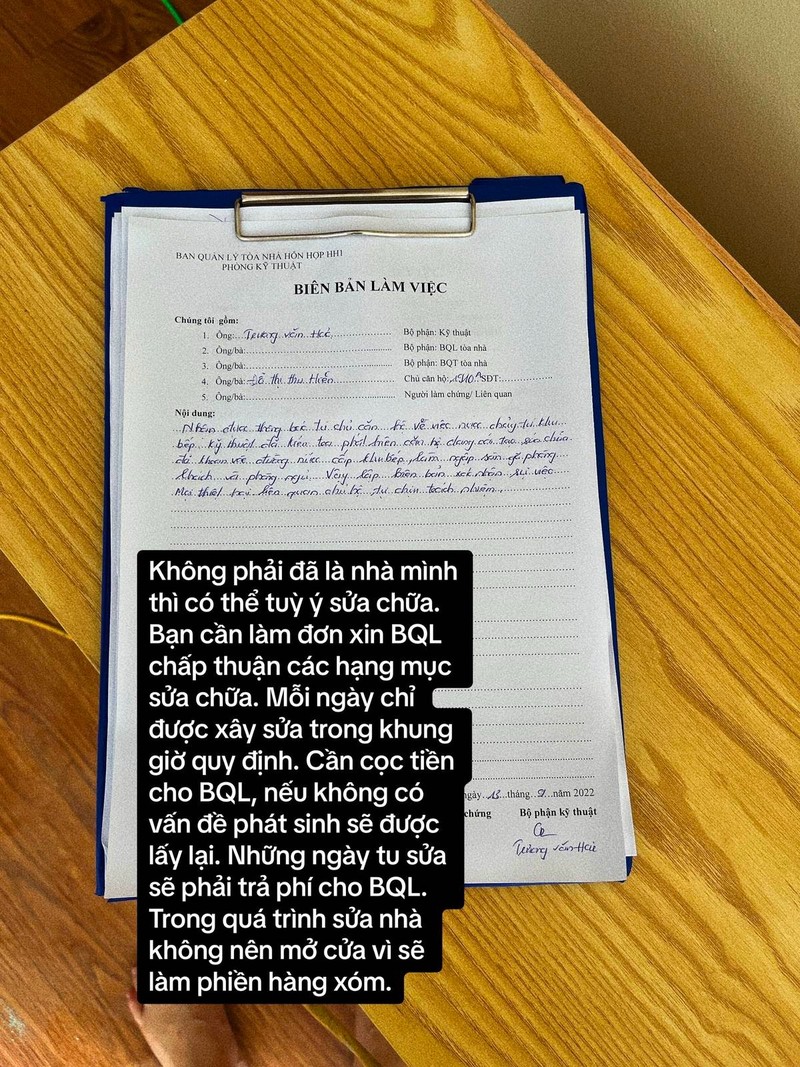 BAN QUẢN LÝ TÒA NHÀ HỖN HỢP HH1
PHÒNG KỸ THUẬT
BIÊN BẢN LÀM VIỆC
Chúng tôi gồm:
1. Ông: Trương văn Hải Bộ phận: Kỹ thuật
2. Ông/bà: Bộ phận: BQL tòa nhà
3. Ông/bà: Bộ phận: BQT tòa nhà
4. Ông/bà: Đỗ thị thu Hiền Chủ căn hộ: SĐT:
5. Ông/bà: Người làm chứng/ Liên quan
Nội dung:
Nhận được thông báo từ chủ căn hộ về việc nước chảy từ khu
bếp. Kỹ thuật đã kiểm tra phát hiện căn hộ đang cải tạo, sửa chữa
đã khoan vào đường nước cấp khu bếp, làm ngập sàn gỗ phòng
khách và phòng ngủ. Vậy lập biên bản xác nhận sự việc.
Mọi thiệt hại liên quan chủ hộ tự chịu trách nhiệm.
Không phải đã là nhà mình
thì có thể tuỳ ý sửa chữa.
Bạn cần làm đơn xin BQL
chấp thuận các hạng mục
sửa chữa. Mỗi ngày chỉ
được xây sửa trong khung
giờ quy định. Cần cọc tiền
cho BQL, nếu không có
vấn đề phát sinh sẽ được
lấy lại. Những ngày tu sửa
sẽ phải trả phí cho BQL.
Trong quá trình sửa nhà
không nên mở cửa vì sẽ
làm phiền hàng xóm.
ngày 13 tháng năm 2022
chứng Bộ phận kỹ thuật
Trương văn Hải